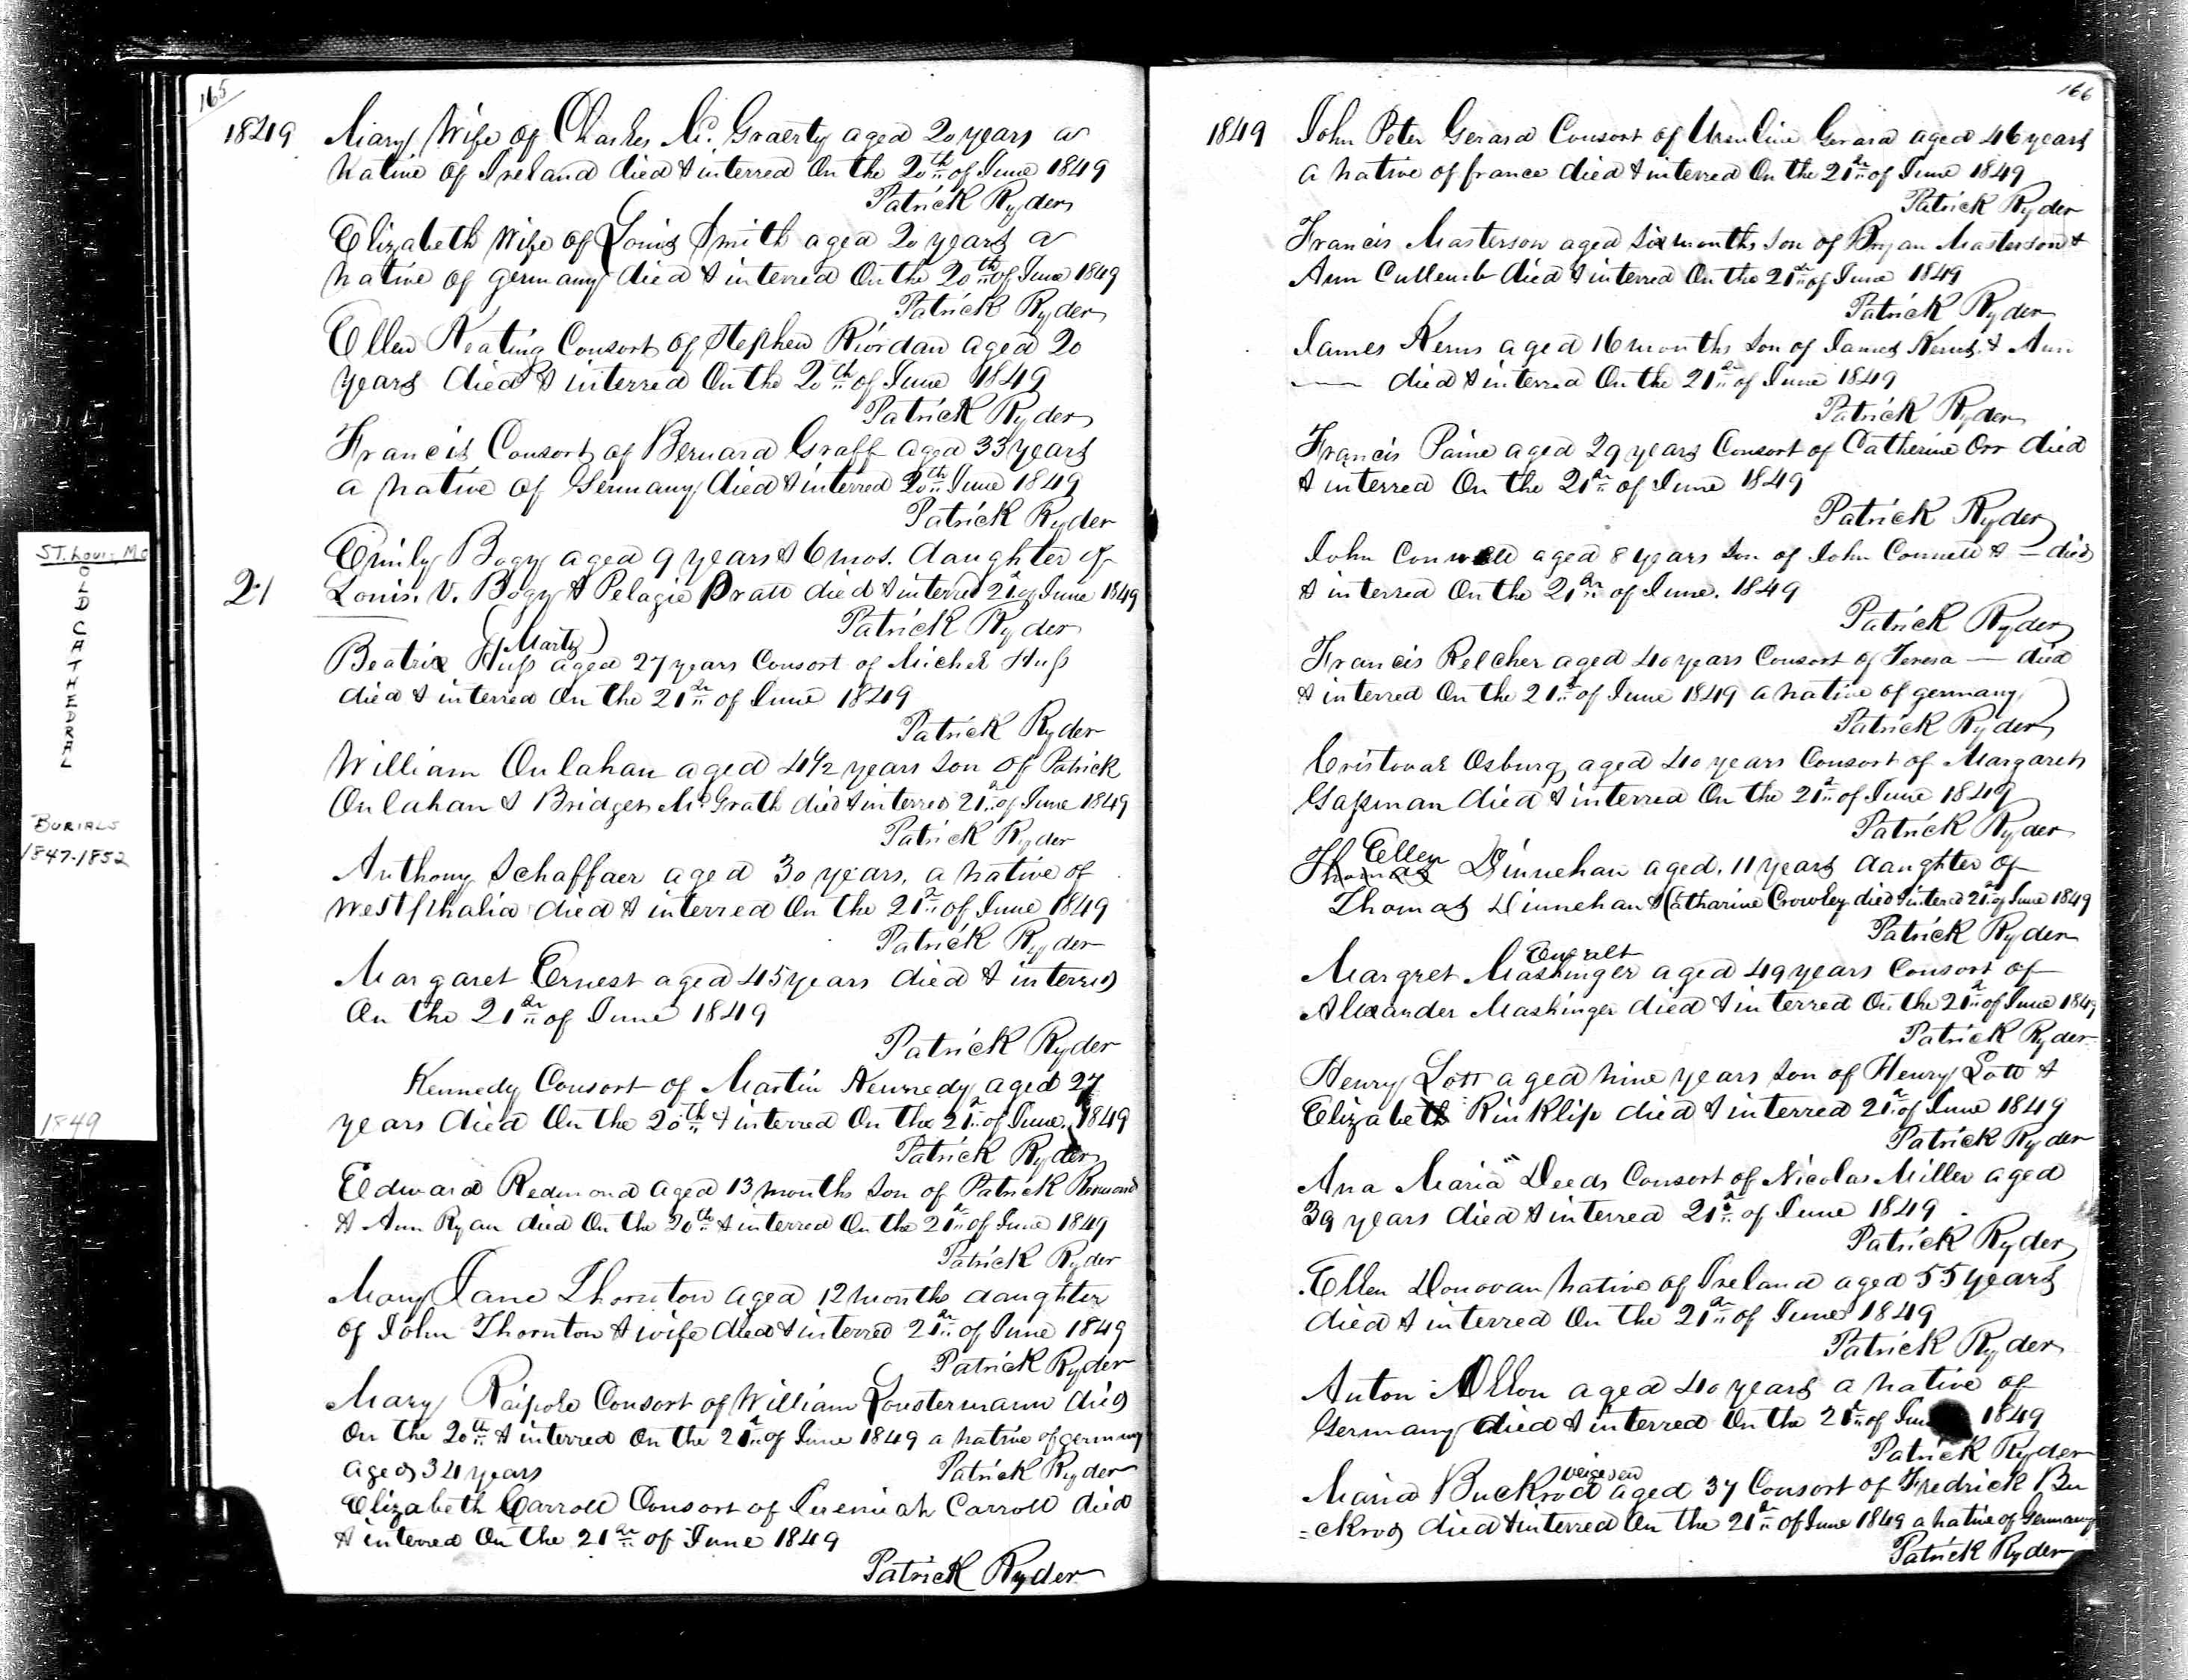 165
1849 Mary Wife of Charles Mc. Graerty aged 20 years a
native of Ireland died & interred On the 20th of June 1849
Patrick Ryder
Elizabeth Wife of Louis Smith aged 20 years a
native of germany died & interred On the 20th of June 1849
Patrick Ryder
Ellen Keating Consort of Stephen Riordan aged 20
years died & interred On the 20th of June 1849
Patrick Ryder
Francis Consort of Bernard Graff aged 33 years
a native of Germany died & interred 20th June 1849
Patrick Ryder
Emily Bogy aged 9 years & 6 mos. daughter of
21 Louis. V. Bogy & Pelagie Pratt died & interred 21 of June 1849
Patrick Ryder
(Marty)
Beatrix Huss aged 27 years Consort of Michel Huss
died & interred On the 21st of June 1849
Patrick Ryder
William Oulahan aged 4 1/2 years son of Patrick
Oulahan & Bridget Mc Grath died & interred 21st of June 1849
Patrick Ryder
Anthony Schaffaer aged 30 years, a native of
Westphalia died & interred On the 21st of June 1849
Patrick Ryder
Margaret Ernest aged 45 years died & interred
On the 21st of June 1849
Patrick Ryder
Kennedy Consort of Martin Kennedy aged 27
years died On the 20th & interred On the 21st of June, 1849
Patrick Ryder
Edward Redmond aged 13 months son of Patrick Redmond
& Ann Ryan died On the 20th & interred On the 21st of June 1849
Patrick Ryder
Mary Jane Thornton aged 12 months daughter
of John Thornton & wife died & interred 21st of June 1849
Patrick Ryder
Mary Raipole Consort of William Loustermann died
On the 20th & interred On the 21st of June 1849 a native of germany
aged 34 years Patrick Ryder
Elizabeth Carroll Consort of Jeremiah Carroll died
& interred On the 21st of June 1849
Patrick Ryder
166
1849 John Peter Gerard Consort of Ursuline Gerard aged 46 years
a native of france died & interred On the 21st of June 1849
Patrick Ryder
Francis Masterson aged six months son of Bryan Masterson &
Ann died & interred On the 21st of June 1849
Patrick Ryder
James Kerns aged 16 months son of James Kerns & Ann
—— died & interred On the 21st of June 1849
Patrick Ryder
Francis Paine aged 29 years Consort of Catherine Orr died
& interred On the 21st of June 1849
Patrick Ryder
John Connell aged 8 years son of John Connell & — died
& interred On the 21st of June. 1849
Patrick Ryder
Francis Relcher aged 40 years Consort of Teresa — died
& interred On the 21st of June 1849 a native of germany,
Patrick Ryder
Cristoval Osburg aged 40 years Consort of Margaret
Gassman died & interred On the 21st of June 1849
Patrick Ryder
Ellen
Thomas Dinnehan aged, 11 years daughter of
Thomas Dinnehan & Catharine Crowley died & interred 21st of June 1849
Patrick Ryder
Margret Mashinger aged 49 years Consort of
Alexander Mashinger died & interred On the 21st of June 1849
Patrick Ryder
Henry Lott aged nine years son of Henry Lott &
Elizabeth Rinklip died & interred 21st of June 1849
Patrick Ryder
Ana Maria Deeds Consort of Nicolas Miller aged
39 years died & interred 21st of June 1849
Patrick Ryder
Ellen Donovan native of Ireland aged 55 years
died & interred On the 21st of June 1849
Patrick Ryder
Anton Ollon aged 40 years a native of
Germany died & interred On the 21st of June 1849
Patrick Ryder
Maria Buckrod aged 37 Consort of Fredrick Bu
=ckrod died & interred On the 21st of June 1849 a native of Germany
Patrick Ryder
ST. Louis, Mo
OLD CATHEDRAL
BURIALS
1847-1852
1849